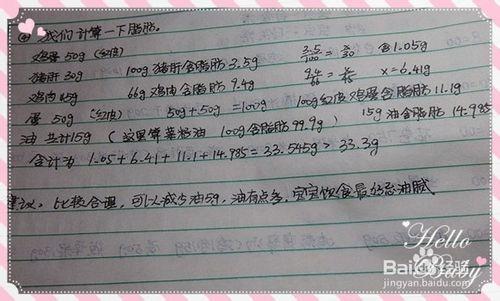 ④ 我们计算一下脂肪。
鸡蛋 50g (红皮)
猪肝 30g 100g 猪肝含脂肪 3.5g 3.5/100 = x/30 含1.05g
鸡肉 45g 66g 鸡肉含脂肪 9.4g 9.4/66 = x=6.41g
蛋 50g (红皮) 50g+50g=100g 100g红皮鸡蛋含脂肪 11.1g
油 共计15g (这里算菜籽油 100g含脂肪 99.9g) 15g油含脂肪 14.985
合计为 1.05+6.41+11.1+14.985=33.545g > 33.3g
比较合理，可以减少油5g，油有点多，宝宝饮食最好忌油腻。
Hello
Baby
Baidu经验
jingyan.baidu.com